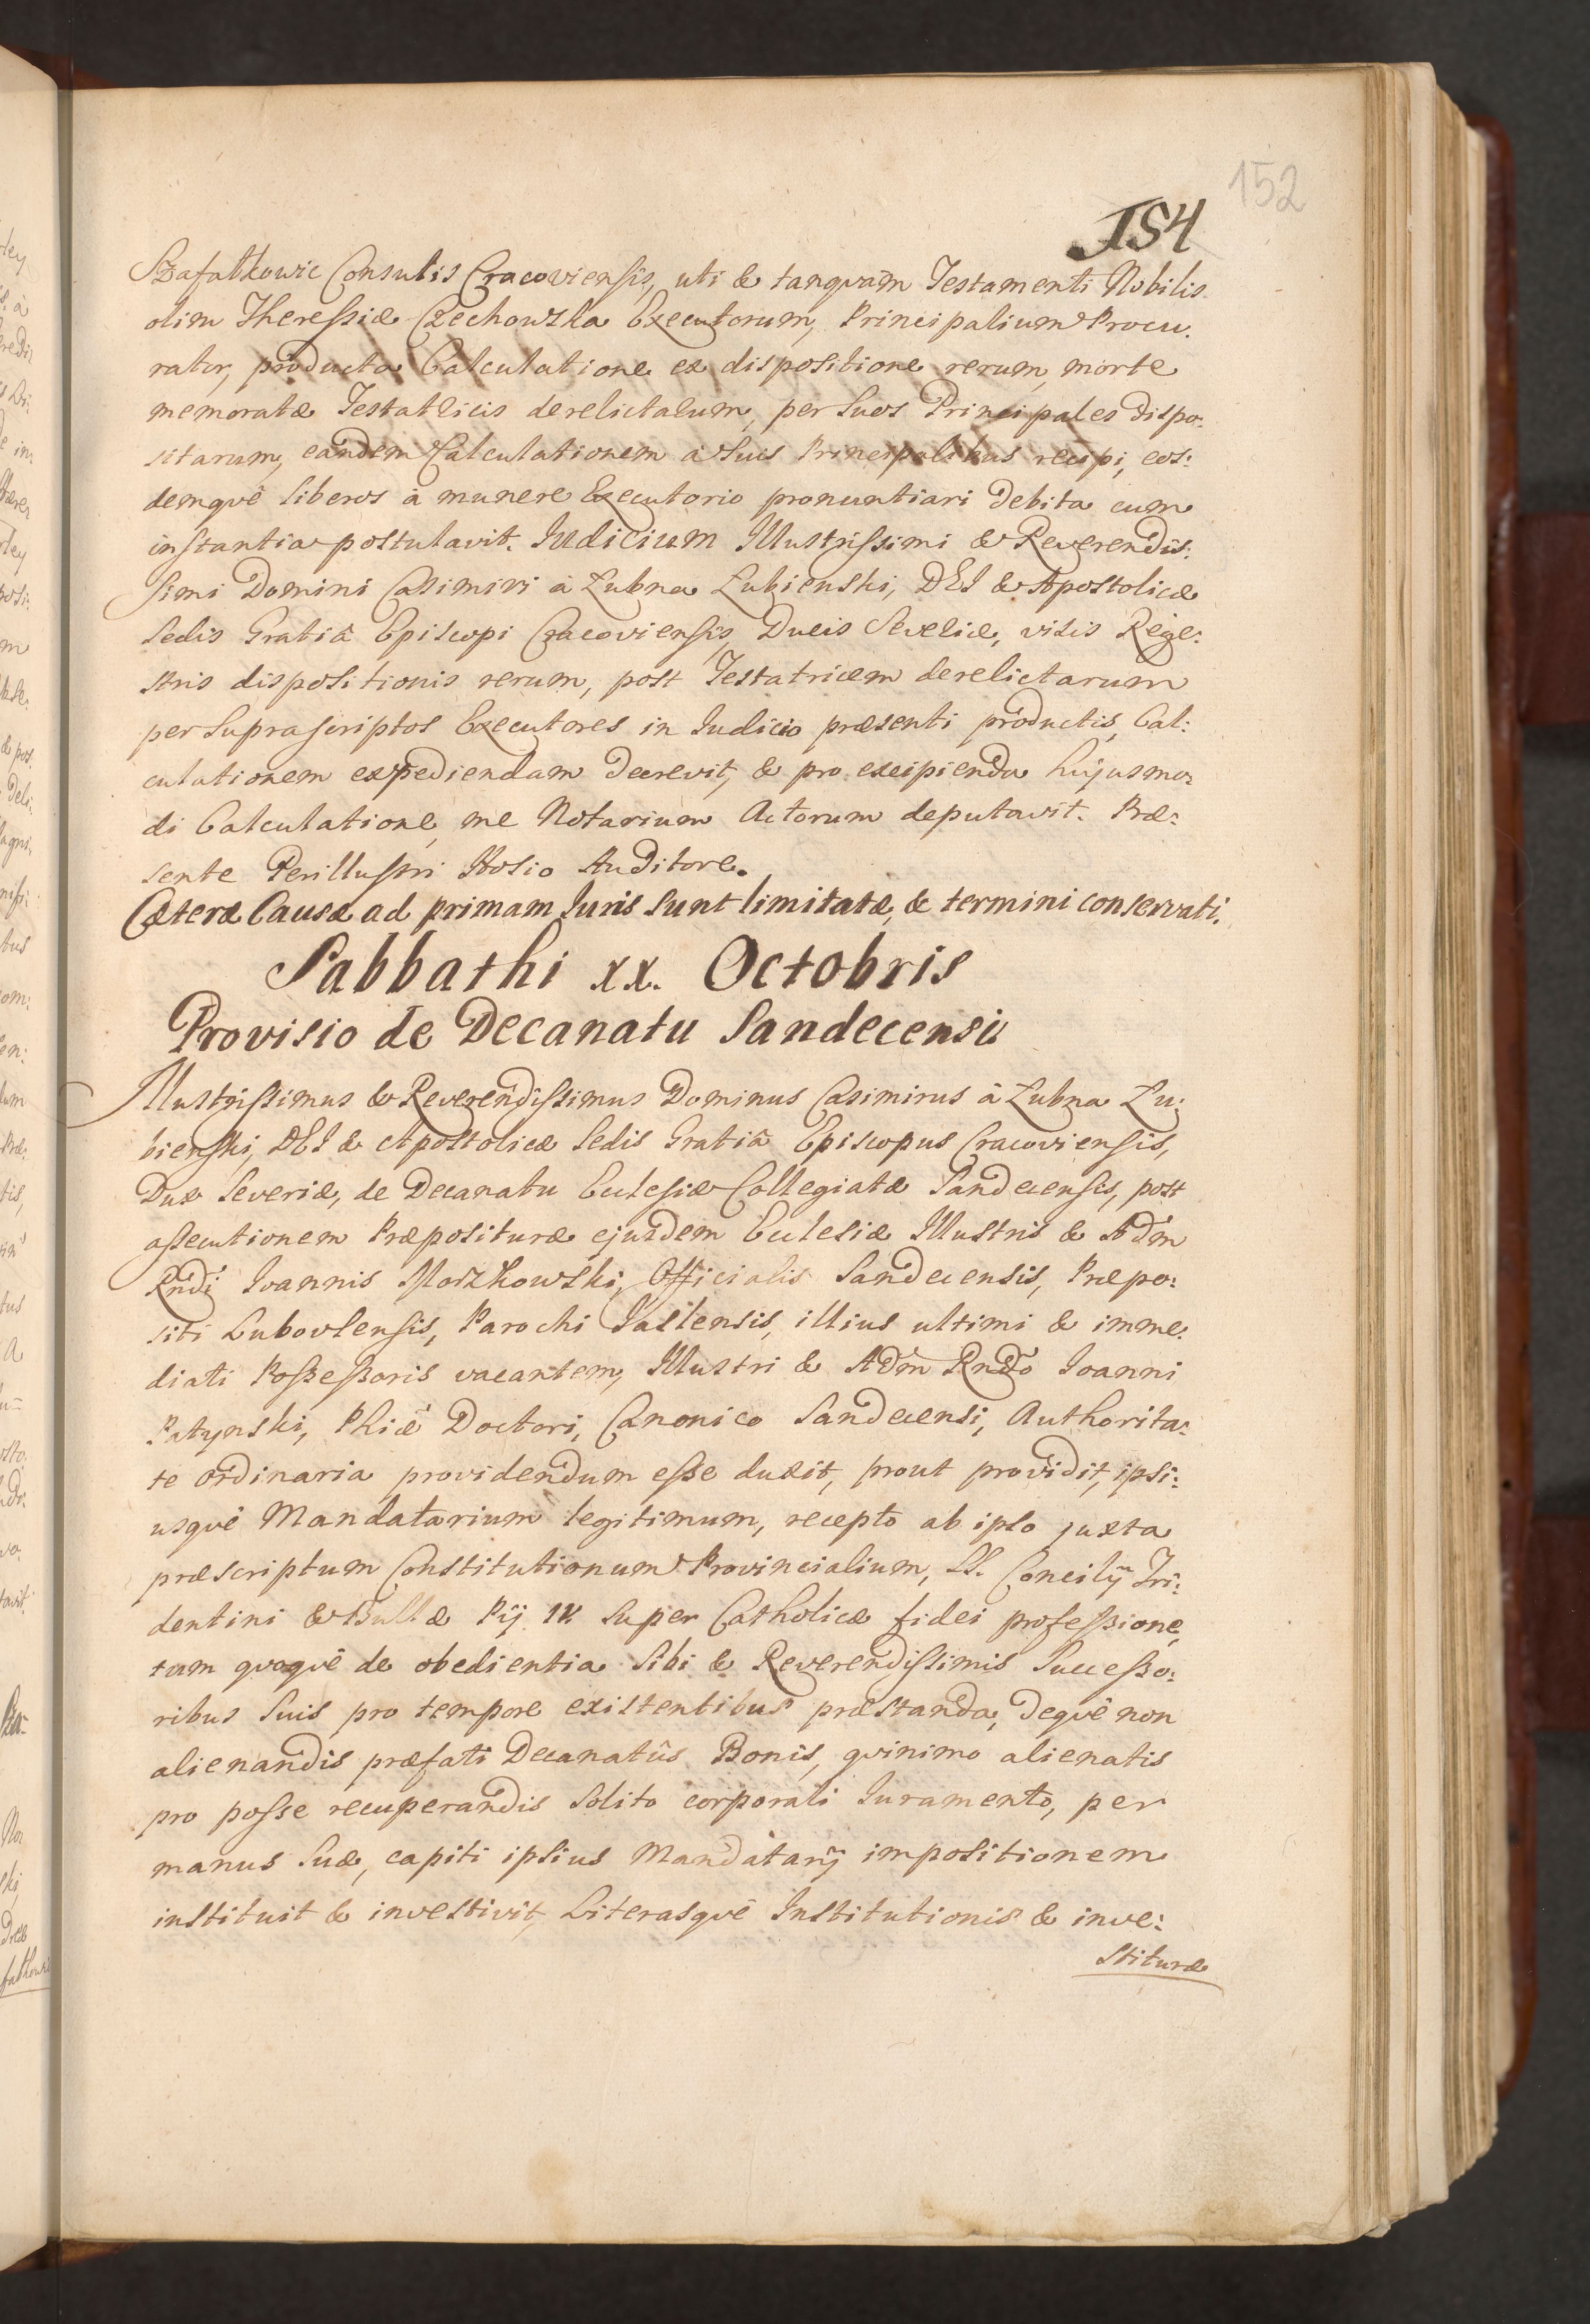 152
154
Szafatkowic Consulis Cracoviensis, uti & tanqvam Testamenti Nobilis
olim Theressiæ Czechowska Executorum, Principalium Procu:
rator, producta Calculatione ex dispositione rerum, morte
memoratæ Testatricis derelictarum, per Suos Principales dispo:
sitarum, eandem Calculationem à Suis Principalibus recipi, eos:
demqvè liberos à munere Executorio pronuntiari debita cum
instantia postulavit. Iudicium Illustrissimi & Reverendis:
simi Domini Casimiri à Łubna Łubienski, DEI & Apostolicæ
Sedis Gratiâ Episcopi Cracoviensis, Ducis Severiæ, visis Rege:
stris dispositionis rerum, post Testatricem derelictarum
per Suprascriptos Executores in Iudicio præsenti productis, Cal:
culationem expediendam decrevit, & pro excipienda hujusmo:
di Calculatione, me Notarium Actorum deputavit. Præ:
sente Perillustri Hosio Auditore.
Cæteræ Causæ ad primam Iuris Sunt limitatæ, & termini conservati.
Sabbathi xx. Octobris
Provisio de Decanatu Sandecensi
Illustrissimus & Reverendissimus Dominus Casimirus à Łubna Łu:
bienski, DEI & Apostolicæ Sedis Gratiâ Episcopus Cracoviensis,
Dux Severiæ, de Decanatu Ecclesiæ Collegiatæ Sandecensis, post
assecutionem Præposituræ ejusdem Ecclesiæ Illustris & Adm
Rndi Ioannis Morzkowski, Officialis Sandecensis, Præpo:
siti Lubovlensis, Parochi Jaslensis, illius ultimi & imme:
diati Possessoris vacantem, Illustri & Adm Rndo Ioanni
Ratynski, Phiæ Doctori, Canonico Sandecensi, Authorita:
te ordinaria providendum esse duxit, prout providit, ipsi:
usqvè Mandatarium legitimum, recepto ab ipso juxta
præscriptum Constitutionum Provincialium, SS. Concilij Tri:
dentini & Bullæ Pij IV. Super Catholicæ fidei professione,
tum qvoqvè de obedientia Sibi & Reverendissimis Successo:
ribus Suis pro tempore existentibus præstanda, deqvè non
alienandis præfati Decanatûs Bonis, qvinimo alienatis
pro posse recuperandis Solito corporali Iuramento, per
manus Suæ, capiti ipsius Mandatarij impositionem
instituit & investivit, Literasqvè Institutionis & inve:
stituræ